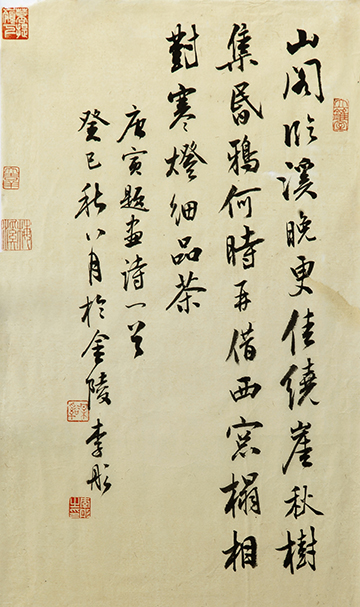 山阁临溪晚更佳繞崖秋樹
集昏鴉何時再借西窓榻相
對寒燈細品茶
唐寅题画诗一首
癸巳秋八月於金陵李彤